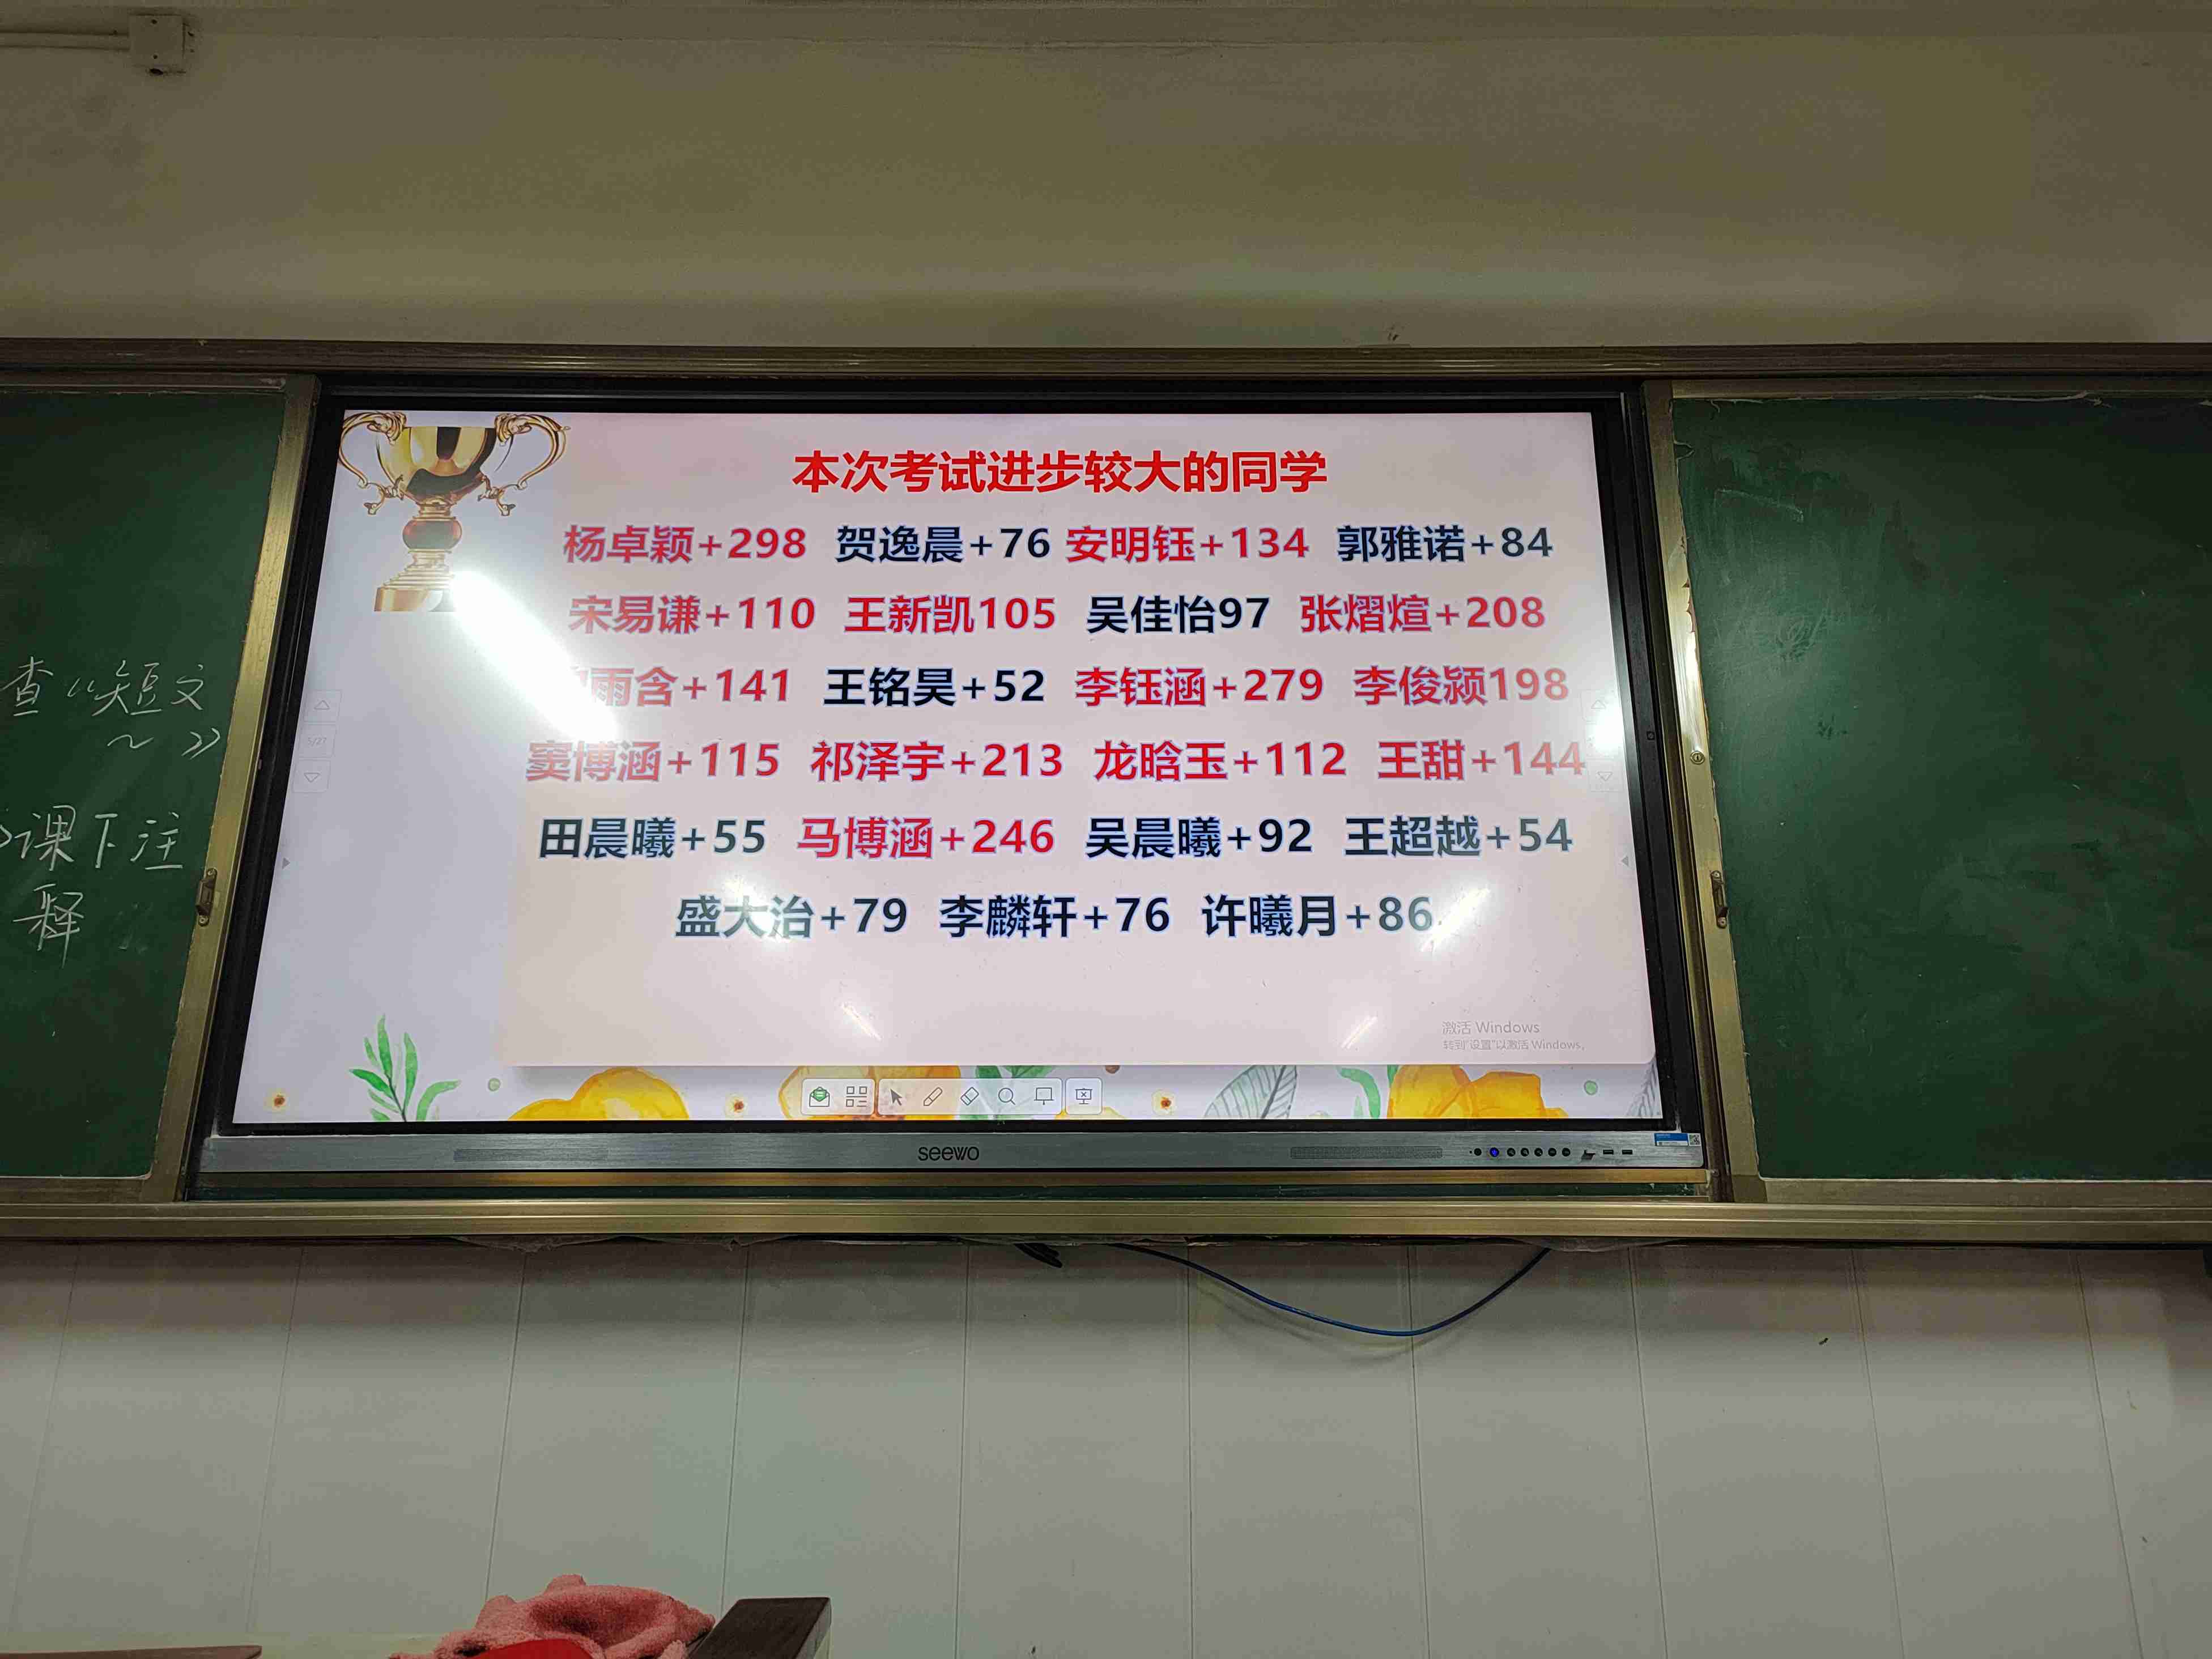 本次考试进步较大的同学
杨卓颖+298 贺逸晨+76 安明钰+134 郭雅诺+84
宋易谦+110 王新凯105 吴佳怡97 张熠煊+208
雨含+141 王铭昊+52 李钰涵+279 李俊颍198
窦博涵+115 祁泽宇+213 龙晗玉+112 王甜+144
田晨曦+55 马博涵+246 吴晨曦+92 王超越+54
盛大治+79 李麟轩+76 许曦月+86
激活 Windows
转到"设置"以激活 Windows。
seewo
查“短文
～》
课下注
释